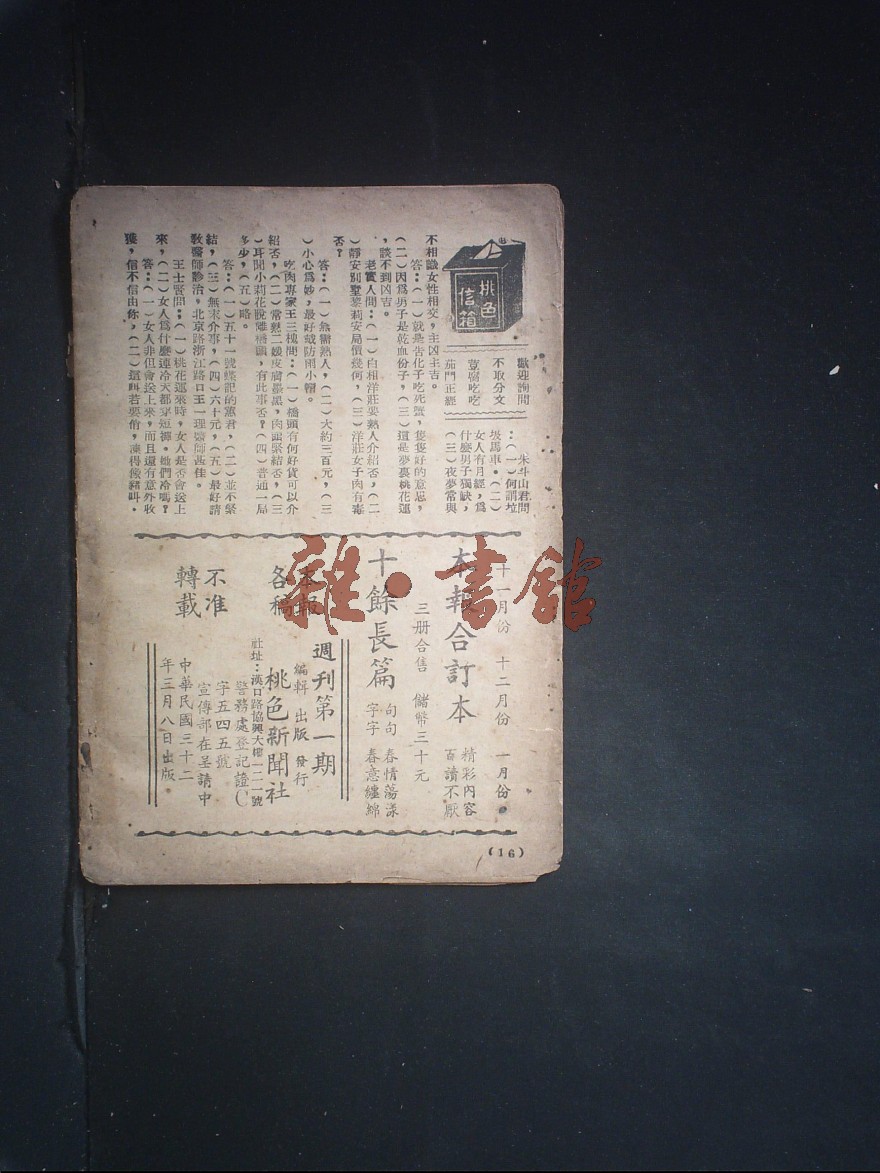 桃色
信箱
歡迎詢問
不取分文
荳腐吃吃
茄門正經
朱斗山君問
：（一）何謂垃
圾馬車。（二）
女人有月經，爲
什麽男子獨缺，
（三）夜夢常與
不相識女性相交，主凶主吉。
答：（一）就是告化子吃死蟹，隻隻好的意思，
（二）因爲男子是乾血份子，（三）這是夢裏桃花運
，談不到凶吉。
老實人問：（一）白相洋莊要熟人介紹否，（二
）靜安別墅黎莉安局價幾何，（三）洋莊女子肉有毒
否？
答：（一）無需熟人，（二）大約三百元，（三
）小心爲妙，最好戴防雨小帽。
吃肉專家王三槐問：（一）橋頭有何好貨可以介
紹否，（二）常熟二媛皮膚墨黑，肉頭緊結否，（三
）耳聞小莉花脫離橋頭，有此事否？（四）普通一局
多少，（五）略。
答：（一）五十一號媒記的蕙君，（二）並不緊
結，（三）無末介事，（四）六十元，（五）最好請
敎醫師診治。北京路浙江路口王一理醫師甚佳。
王士賢問；（一）桃花運來時，女人是否會送上
來，（二）女人爲什麽連冷天都穿短褲。她們冷嗎？
答：（一）女人非但會送上來，而且還有意外收
獲，信不信由你，（二）這叫若要俏，凍得飯豬叫。
十一月份 十二月份 一月份
本報合訂本
精彩內容
百讀不厭
三册合售 儲幣三十元
十餘長篇
句句 春情蕩漾
字字 春意纏綿
本報
各稿
不准
轉載
週刊第一期
編輯 出版 發行
桃色新聞社
社址：漢口路協興大樓一二一號
警務處登記證C
字五四五號
宣傳部在呈請中
中華民國三十二
年三月八日出版
（16）
雜·書館